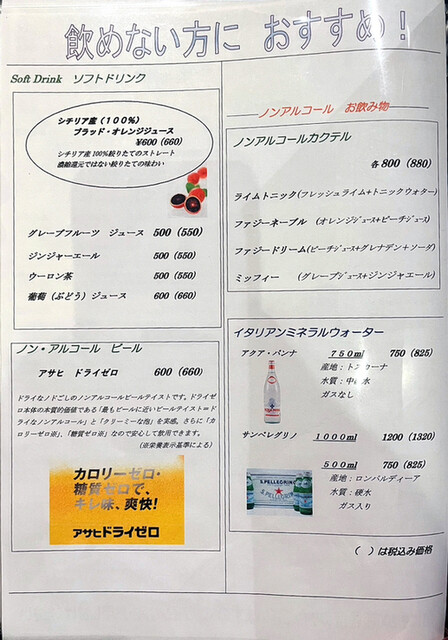 飲めない方に おすすめ！
Soft Drink ソフトドリンク
シチリア産（１００％）
ブラッド・オレンジジュース
¥600 (660)
シチリア産100%絞りたてのストレート
濃縮還元ではない絞りたての味わい
グレープフルーツ ジュース 500 (550)
ジンジャーエール 500 (550)
ウーロン茶 500 (550)
葡萄（ぶどう）ジュース 600 (660)
ノン・アルコール ビール
アサヒ ドライゼロ 600 (660)
ドライなノドごしのノンアルコールビールテイストです。ドライゼ
ロ本体の本質的価値である「最もビールに近いビールテイスト＝ド
ライなノンアルコール」と「クリーミーな泡」を実感。さらに「カ
ロリーゼロ※」、「糖質ゼロ※」なので安心して飲用できます。
（※栄養表示基準による）
カロリーゼロ・
糖質ゼロで、
キレ味、爽快！
アサヒドライゼロ
ノンアルコール お飲み物
ノンアルコールカクテル
各800 (880)
ライムトニック（フレッシュライム+トニックウォター）
ファジーネーブル （オレンジジュース+ピーチジュース）
ファジードリーム（ピーチジュース+グレナデン+ソーダ）
ミッフィー （グレープジュース+ジンジャエール）
イタリアンミネラルウォーター
アクア・パンナ ７５０ml 750 (825)
産地：トスカーナ
水質：中硬水
ガスなし
サンペレグリノ １０００ml 1200 (1320)
５００ml 750 (825)
産地：ロンバルディーア
水質：硬水
ガス入り
S.PELLEGRINO
（ ）は税込み価格